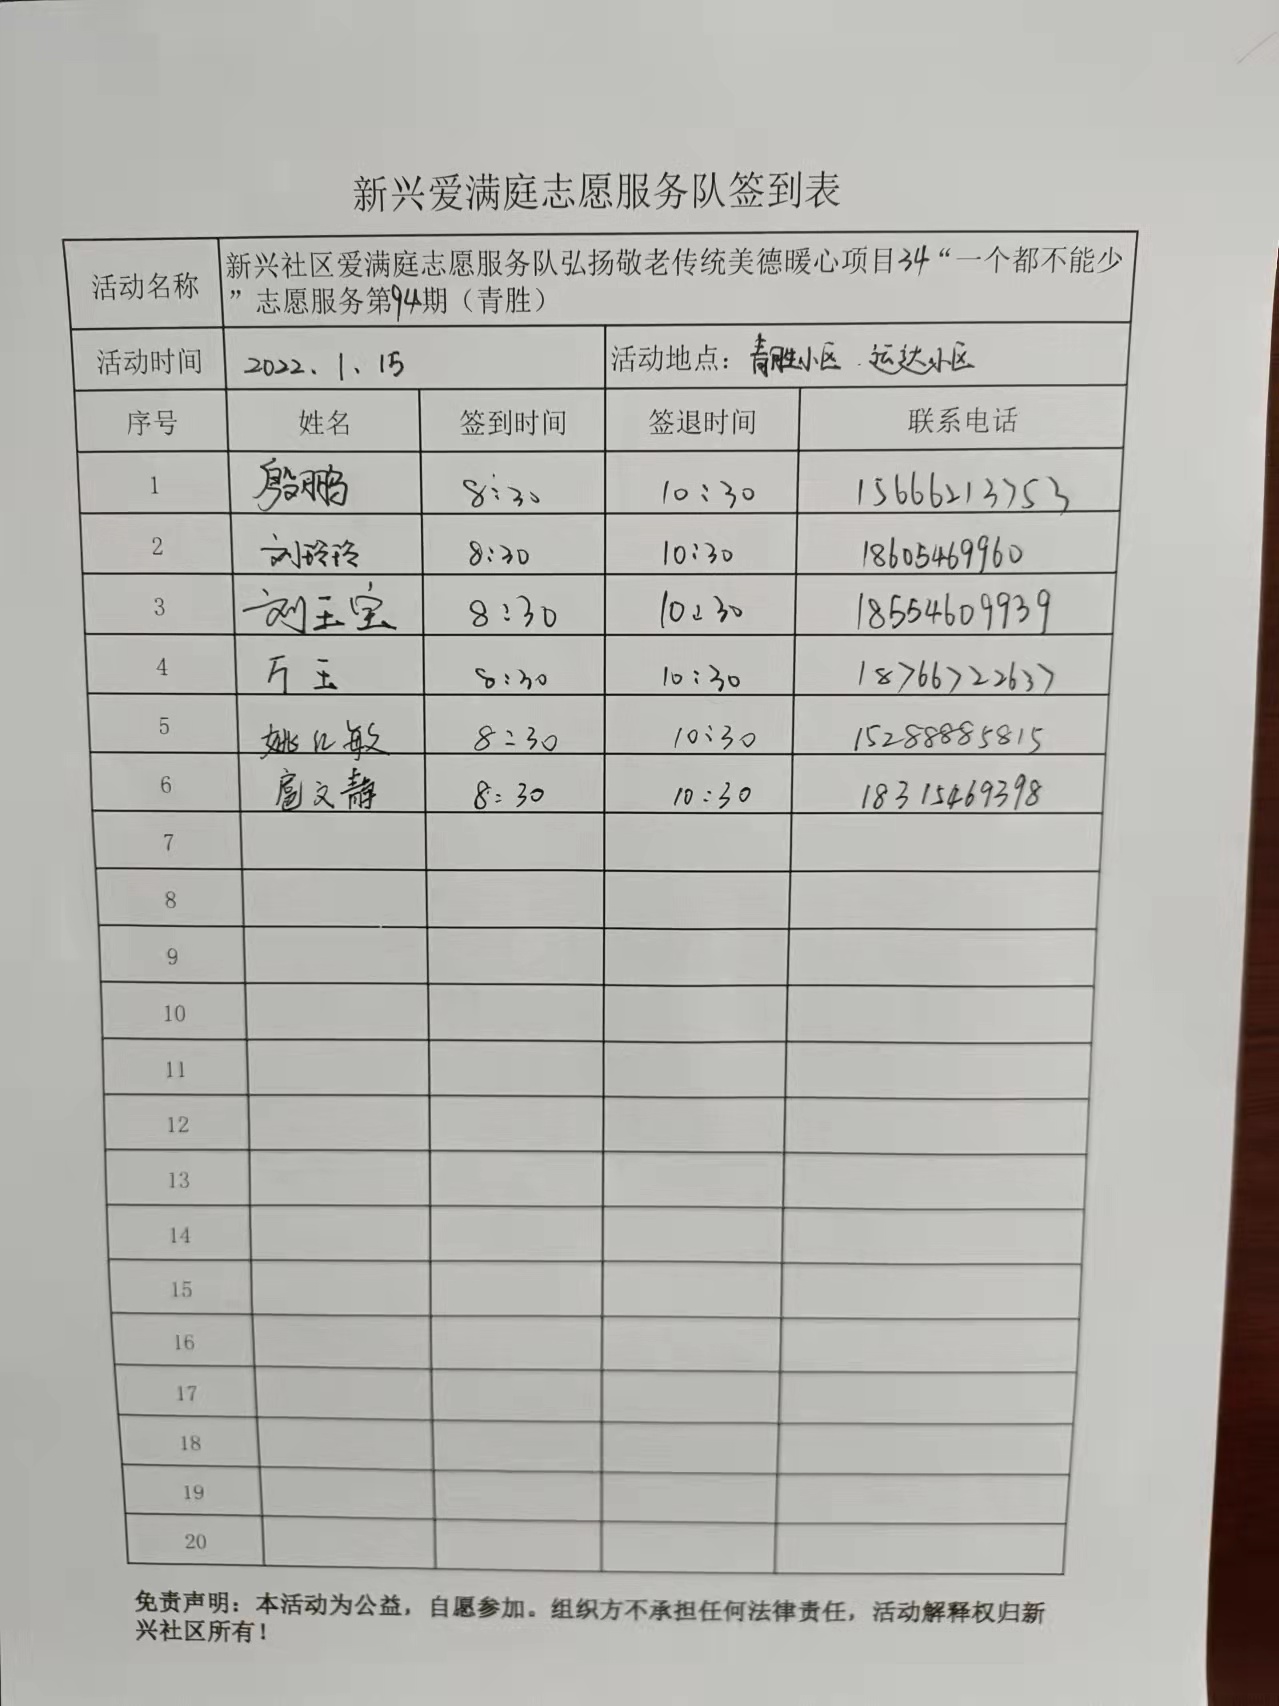 新兴爱满庭志愿服务队签到表
活动名称 新兴社区爱满庭志愿服务队弘扬敬老传统美德暖心项目34“一个都不能少
”志愿服务第94期（青胜）
活动时间 2022、1、15 活动地点：青胜小区 运达小区
序号 姓名 签到时间 签退时间 联系电话
1 殷鹏 8:30 10:30 15666213753
2 刘玲玲 8:30 10:30 18605469960
3 刘玉宝 8:30 10:30 18554609939
4 万玉 8:30 10:30 18766722637
5 姚 敏 8:30 10:30 15288885815
6 扈文静 8:30 10:30 18315469398
7
8
9
10
11
12
13
14
15
16
17
18
19
20
免责声明：本活动为公益，自愿参加。组织方不承担任何法律责任，活动解释权归新
兴社区所有！